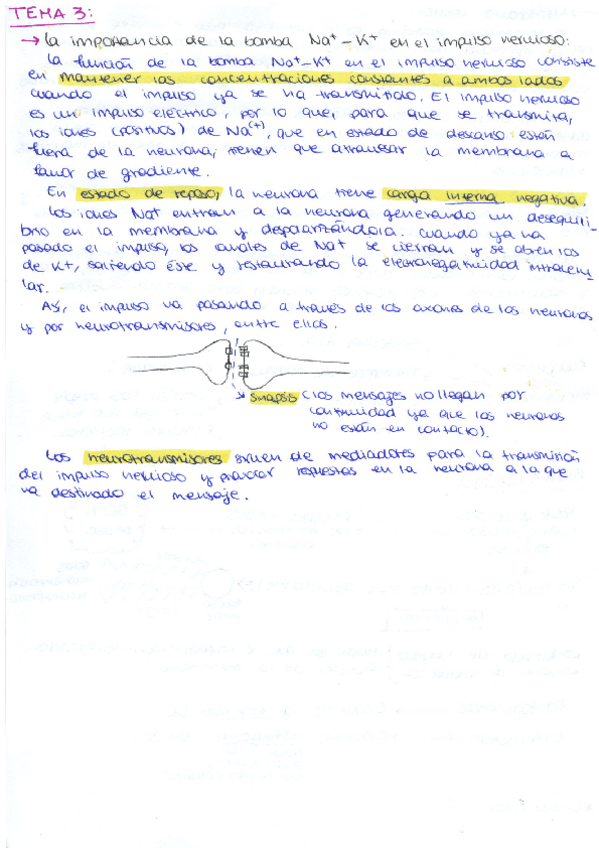 TEMA 3:
→ La importancia de la bomba Na⁺-K⁺ en el impulso nervioso:
La función de la bomba Na⁺-K⁺ en el impulso nervioso consiste
en mantener las concentraciones constantes a ambos lados
cuando el impulso ya se ha transmitido. El impulso nervioso
es un impulso eléctrico, por lo que, para que se transmita,
los iones (positivos) de Na(+), que en estado de descanso están
fuera de la neurona, tienen que atravesar la membrana a
favor de gradiente.
En estado de reposo, la neurona tiene carga interna negativa.
Los iones Na+ entran a la neurona generando un desequili-
brio en la membrana y despolarizándola. Cuando ya ha
pasado el impulso, los canales de Na+ se cierran y se abren los
de K+, saliendo éste y restaurando la electronegatividad intracelu-
lar.
Así, el impulso va pasando a través de los axones de las neuronas
y por neurotransmisores, entre ellas.
sinapsis (los mensajes no llegan por
continuidad ya que las neuronas
no están en contacto).
Los neurotransmisores sirven de mediadores para la transmisión
del impulso nervioso y provocar respuestas en la neurona a la que
va destinado el mensaje.